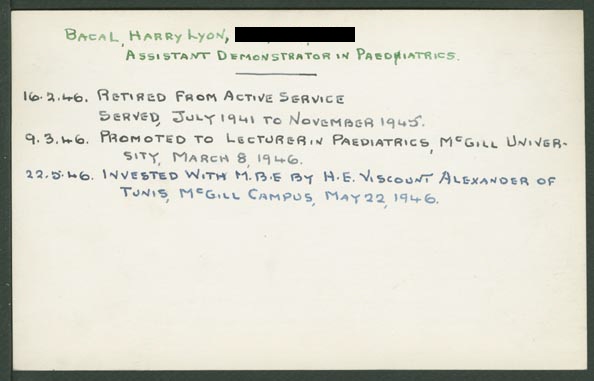 BACAL, HARRY LYON,
ASSISTANT DEMONSTRATOR IN PAEDIATRICS.
16.2.46. RETIRED FROM ACTIVE SERVICE
SERVED, JULY 1941 TO NOVEMBER 1945.
9.3.46. PROMOTED TO LECTURER IN PAEDIATRICS, McGILL UNIVER-
SITY, MARCH 8, 1946.
22.5.46. INVESTED WITH M.B.E BY H.E. VISCOUNT ALEXANDER OF
TUNIS, McGILL CAMPUS, MAY 22, 1946.